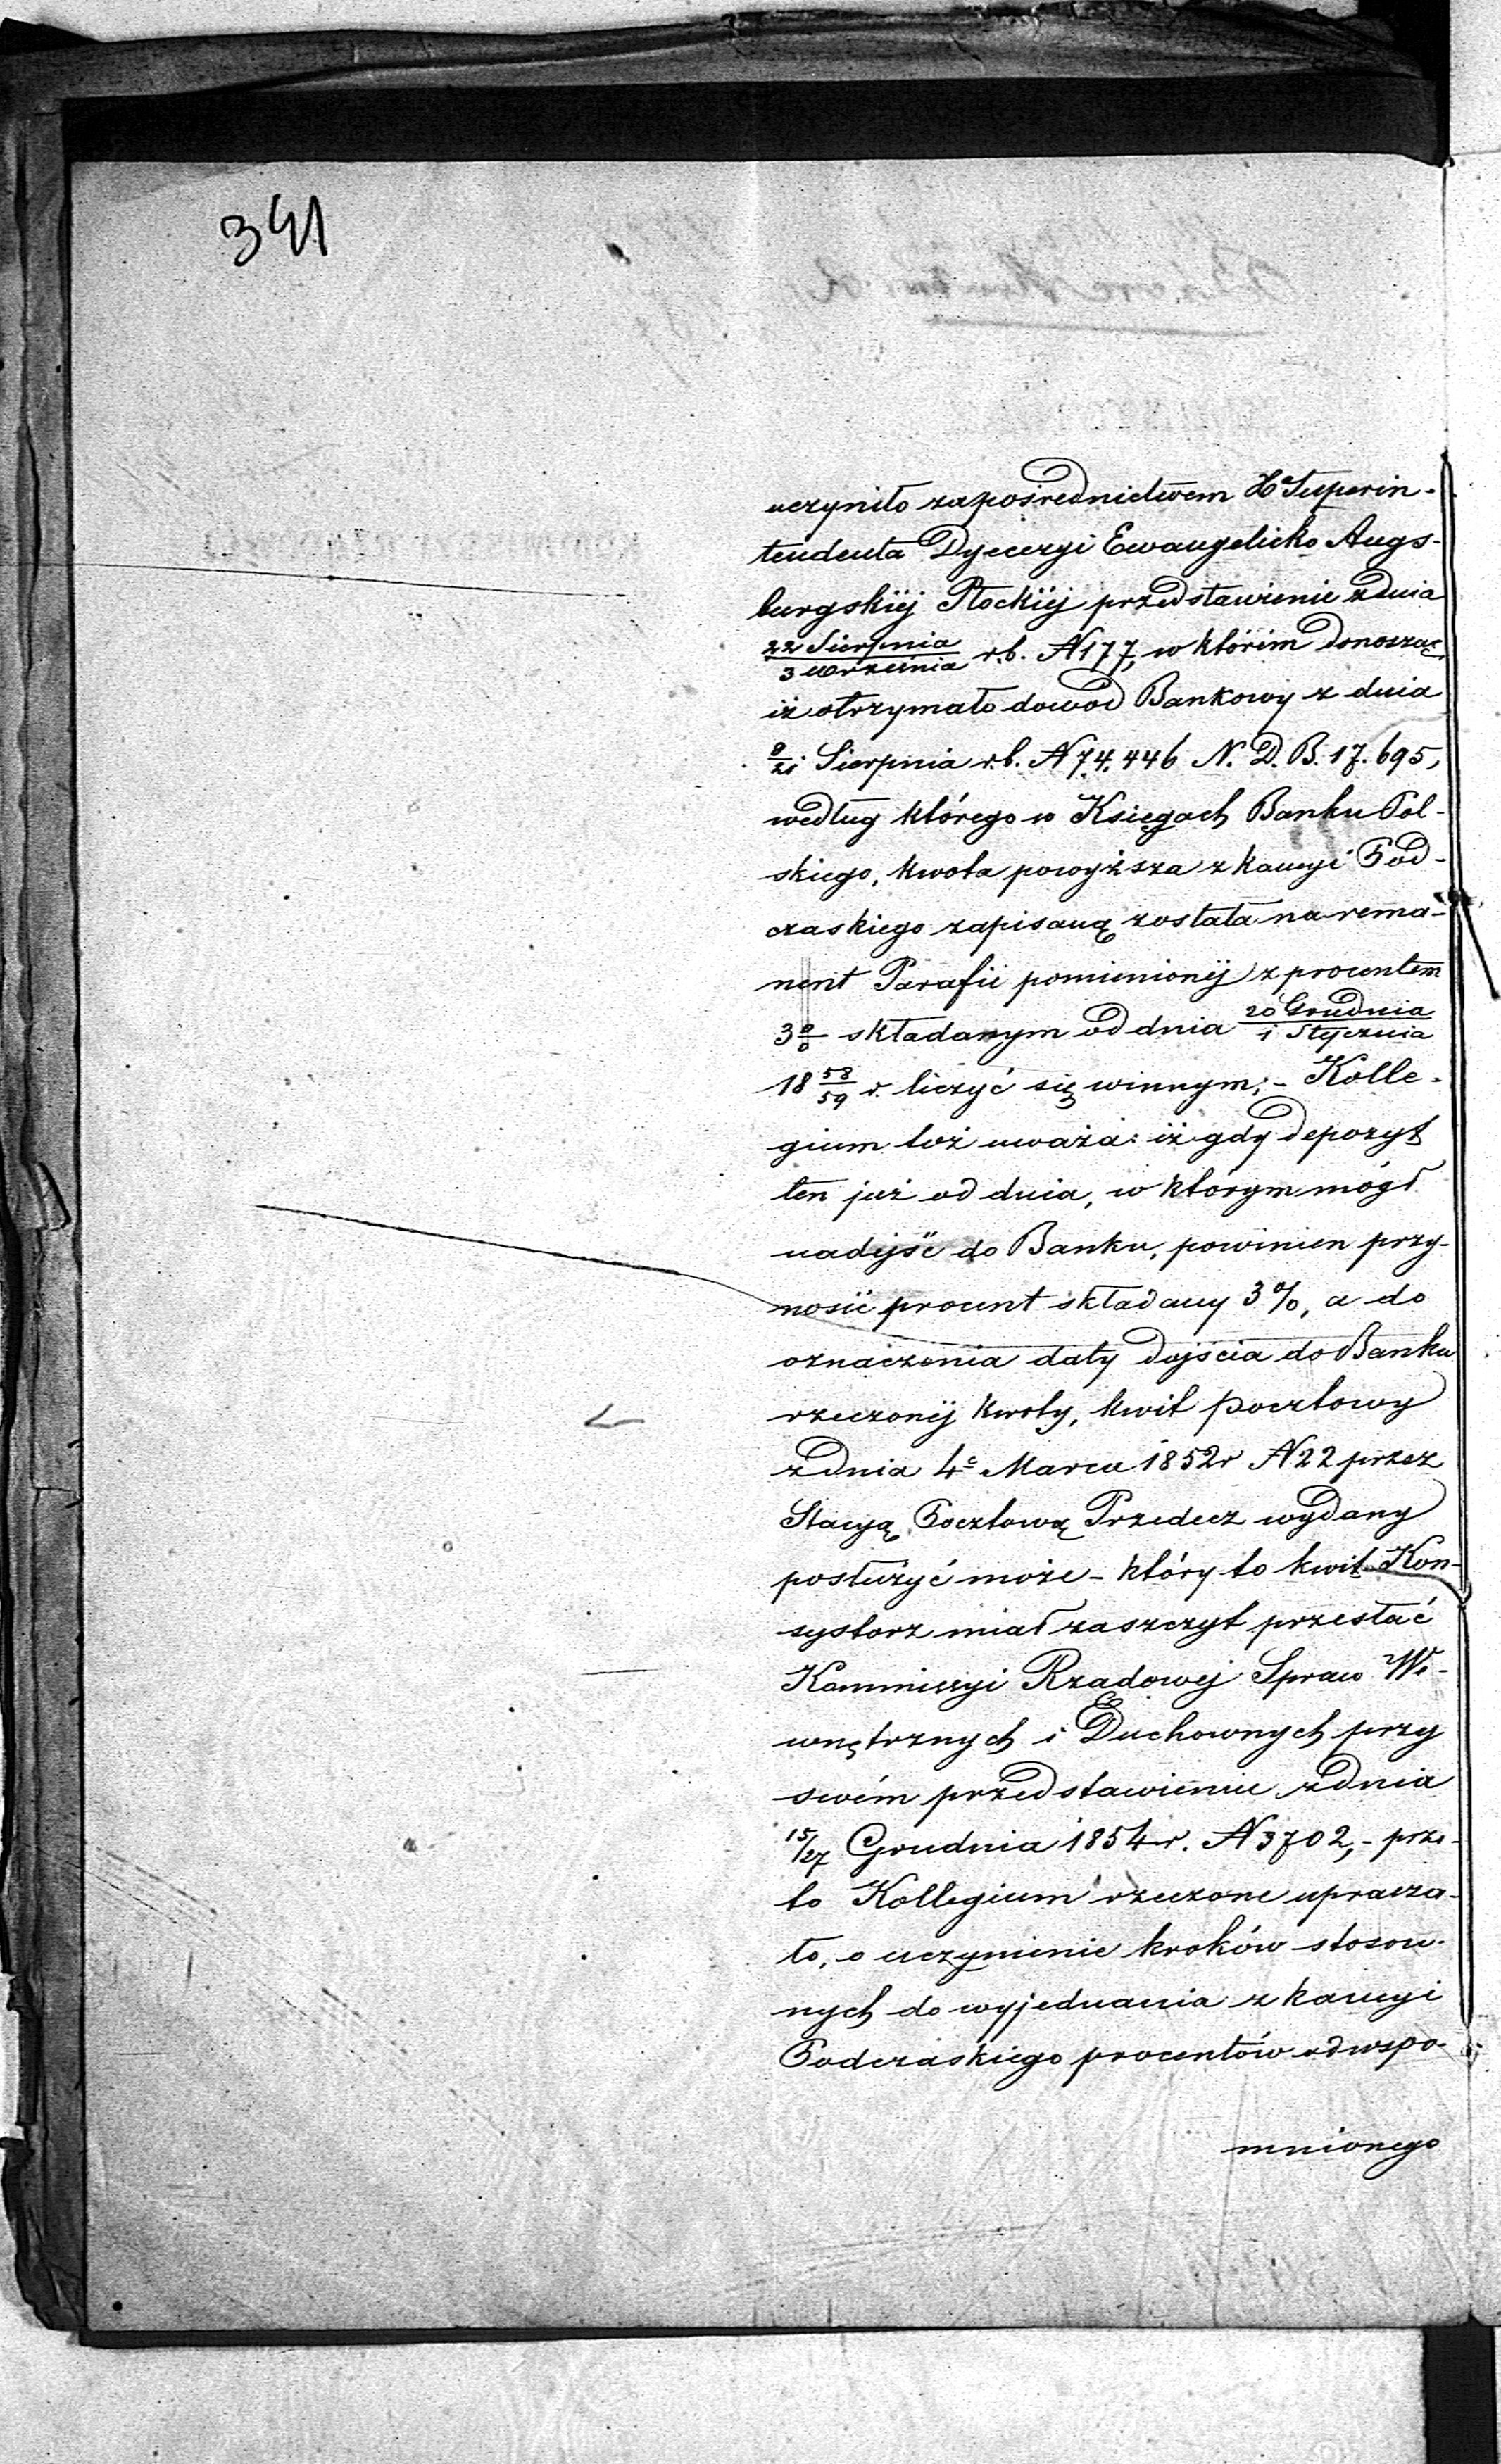 341
uczyniło zapośrednictwem X Superin-
tendenta Dyecezyi Ewangelicko Augs-
burgskiéj Płockiéj przedstawienie z dnia
22 Sierpnia/3 Września r.b. N 177, w którim donosząc,
iż otrzymało dowod Bankowy z dnia
9/21 Sierpnia r.b. N 74.446 N. D. B. 17.695,
według którego w Księgach Banku Pol-
skiego, kwota powyższa z kaucyi Pod-
czaskiego zapisaną została na rema-
nent Parafii pomienionéj z procentem
3 0/0 składanym od dnia 20 Grudnia/1 Stycznia
18 58/59 r. liczyć się winnym; - Kolle-
gium toż uważa: iż gdy depozyt
ten już od dnia, w którym mógł
nadejść do Banku, powinien przy-
nosić procent składany 3%, a do
oznaczenia daty dojścia do Banku
rzeczonéj kwoty, kwit pocztowy
z dnia 4 Marca 1852 r N 22 przez
Stacyą Pocztową Przedecz wydany
posłużyć może - który to kwit Kon-
systorz miał zaszczyt przesłać
Kommissyi Rządowej Spraw We-
wnętrznych i Duchownych przy
swém przedstawieniu z dnia
15/27 Grudnia 1854 r. N 3702, - prze-
to Kollegium rzeczone uprasza-
ło, o uczynienie kroków stosow-
nych do wyjednania z kaucyi
Podczaskiego procentów od wspo-
mnionego